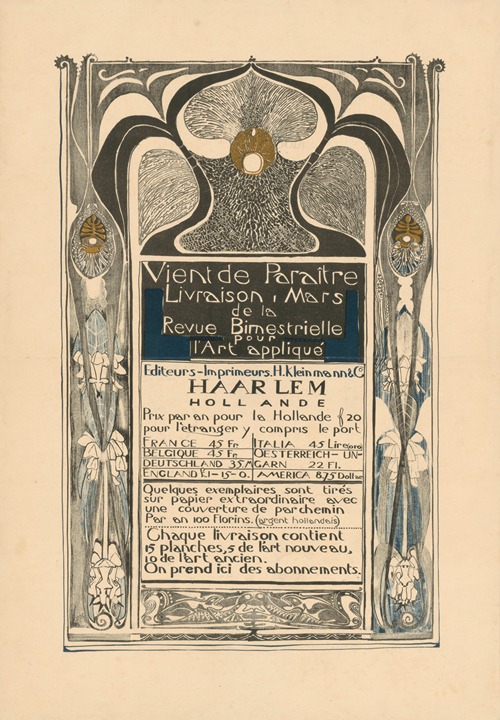 Vient de Paraître
Livraison 1 Mars
de la
Revue Bimestrielle
pour
l'Art appliqué
Editeurs-Imprimeurs. H. Kleinmann & Co
HAARLEM
HOLLANDE
Prix par an pour la Hollande f 20
pour l'etranger y compris le port
FRANCE 45 Fr. ITALIA 45 Lire(oro)
BELGIQUE 45 Fr. OESTERREICH-UN-
DEUTSCHLAND 35 M GARN 22 Fl.
ENGLAND £1-15-0. AMERICA 8.75 Dollar
Quelques exemplaires sont tirés
sur papier extraordinaire avec
une couverture de parchemin
Par an 100 Florins. (argent hollandais)
Chaque livraison contient
15 planches, 5 de l'art nouveau,
10 de l'art ancien.
On prend ici des abonnements.